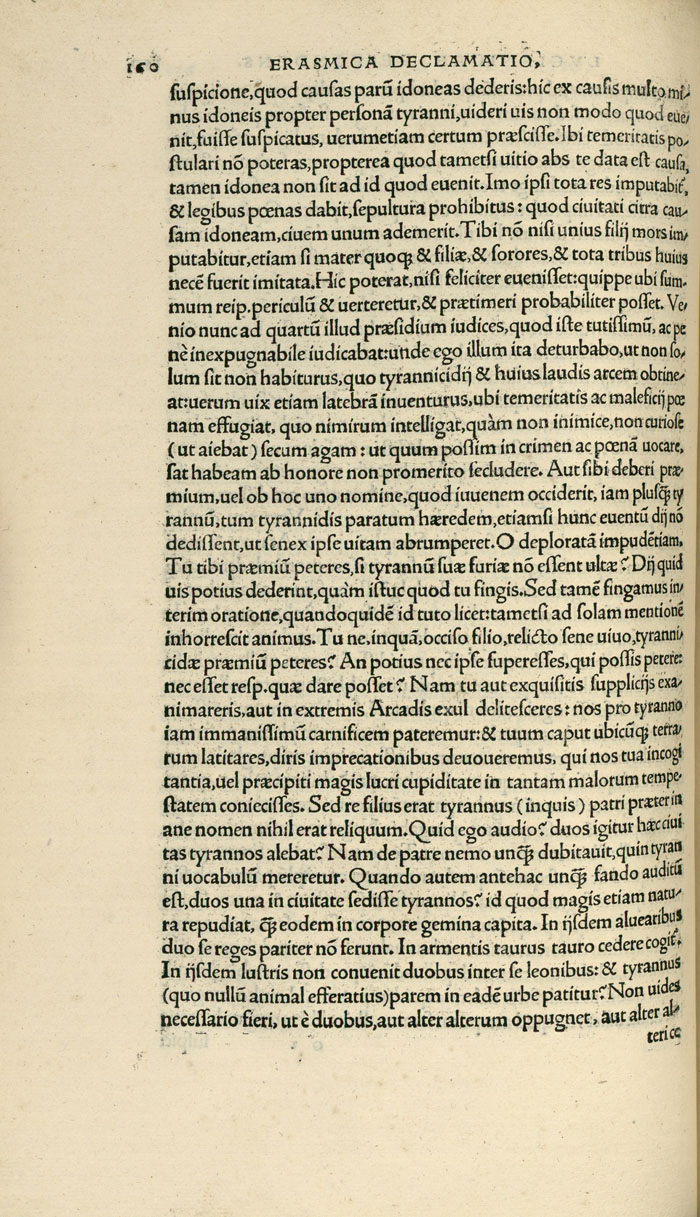 160 ERASMICA DECLAMATIO,
suspicione,quod causas parū idoneas dederis:hic ex causis multo mi-
nus idoneis propter personā tyranni,uideri uis non modo quod eue-
nit,fuisse suspicatus, uerumetiam certum præscisse.Ibi temeritatis po-
stulari nō poteras,propterea quod tametsi uitio abs te data est causa,
tamen idonea non sit ad id quod euenit.Imo ipsi tota res imputabit̃,
& legibus pœnas dabit,sepultura prohibitus: quod ciuitati citra cau-
sam idoneam,ciuem unum ademerit.Tibi nō nisi unius filij mors im-
putabitur,etiam si mater quoq; & filiæ,& sorores,& tota tribus huius
necē fuerit imitata.Hic poterat,nisi feliciter euenisset:quippe ubi sum-
mum reip.periculū & uerteretur,& prætimeri probabiliter posset. Ve-
nio nunc ad quartū illud præsidium iudices,quod iste tutissimū, ac pe
nè inexpugnabile iudicabat:unde ego illum ita deturbabo,ut non so-
lum sit non habiturus,quo tyrannicidij & huius laudis arcem obtine-
at:uerum uix etiam latebrā inuenturus,ubi temeritatis ac maleficij pœ
nam effugiat, quo nimirum intelligat,quàm non inimice,non curiose
(ut aiebat) secum agam: ut quum possim in crimen ac pœnā uocare,
sat habeam ab honore non promerito secludere. Aut sibi deberi præ-
mium,uel ob hoc uno nomine,quod iuuenem occiderit, iam plusq̃ ty
rannū,tum tyrannidis paratum hæredem,etiamsi hunc euentū dij nō
dedissent,ut senex ipse uitam abrumperet.O deploratā impudētiam.
Tu tibi præmiū peteres,si tyrannū suæ furiæ nō essent ultæ? Dij quid
uis potius dederint,quàm istuc quod tu fingis.Sed tamē fingamus in-
terim oratione,quandoquidē id tuto licet:tametsi ad solam mentionē
inhorrescit animus.Tu ne,inquā,occiso filio,relicto sene uiuo,tyranni-
cidæ præmiū peteres? An potius nec ipse superesses,qui possis petere:
nec esset resp.quæ dare posset? Nam tu aut exquisitis supplicijs exa-
nimareris,aut in extremis Arcadis exul delitesceres: nos pro tyranno
iam immanissimū carnificem pateremur:& tuum caput ubicūq; terra-
rum latitares,diris imprecationibus deuoueremus, qui nos tua incogi
tantia,uel præcipiti magis lucri cupiditate in tantam malorum tempe-
statem coniecisses. Sed re filius erat tyrannus (inquis) patri præter in
ane nomen nihil erat reliquum.Quid ego audio? duos igitur hæc ciui
tas tyrannos alebat? Nam de patre nemo unq̃ dubitauit,quin tyran
ni uocabulū mereretur. Quando autem antehac unq̃ fando auditū
est,duos una in ciuitate sedisse tyrannos? id quod magis etiam natu-
ra repudiat, q̃ eodem in corpore gemina capita. In ijsdem aluearibus
duo se reges pariter nō ferunt. In armentis taurus tauro cedere cogit̃.
In ijsdem lustris non conuenit duobus inter se leonibus: & tyrannus
(quo nullū animal efferatius)parem in eadē urbe patitur? Non uides
necessario fieri, ut è duobus,aut alter alterum oppugnet, aut alter al-
teri ce